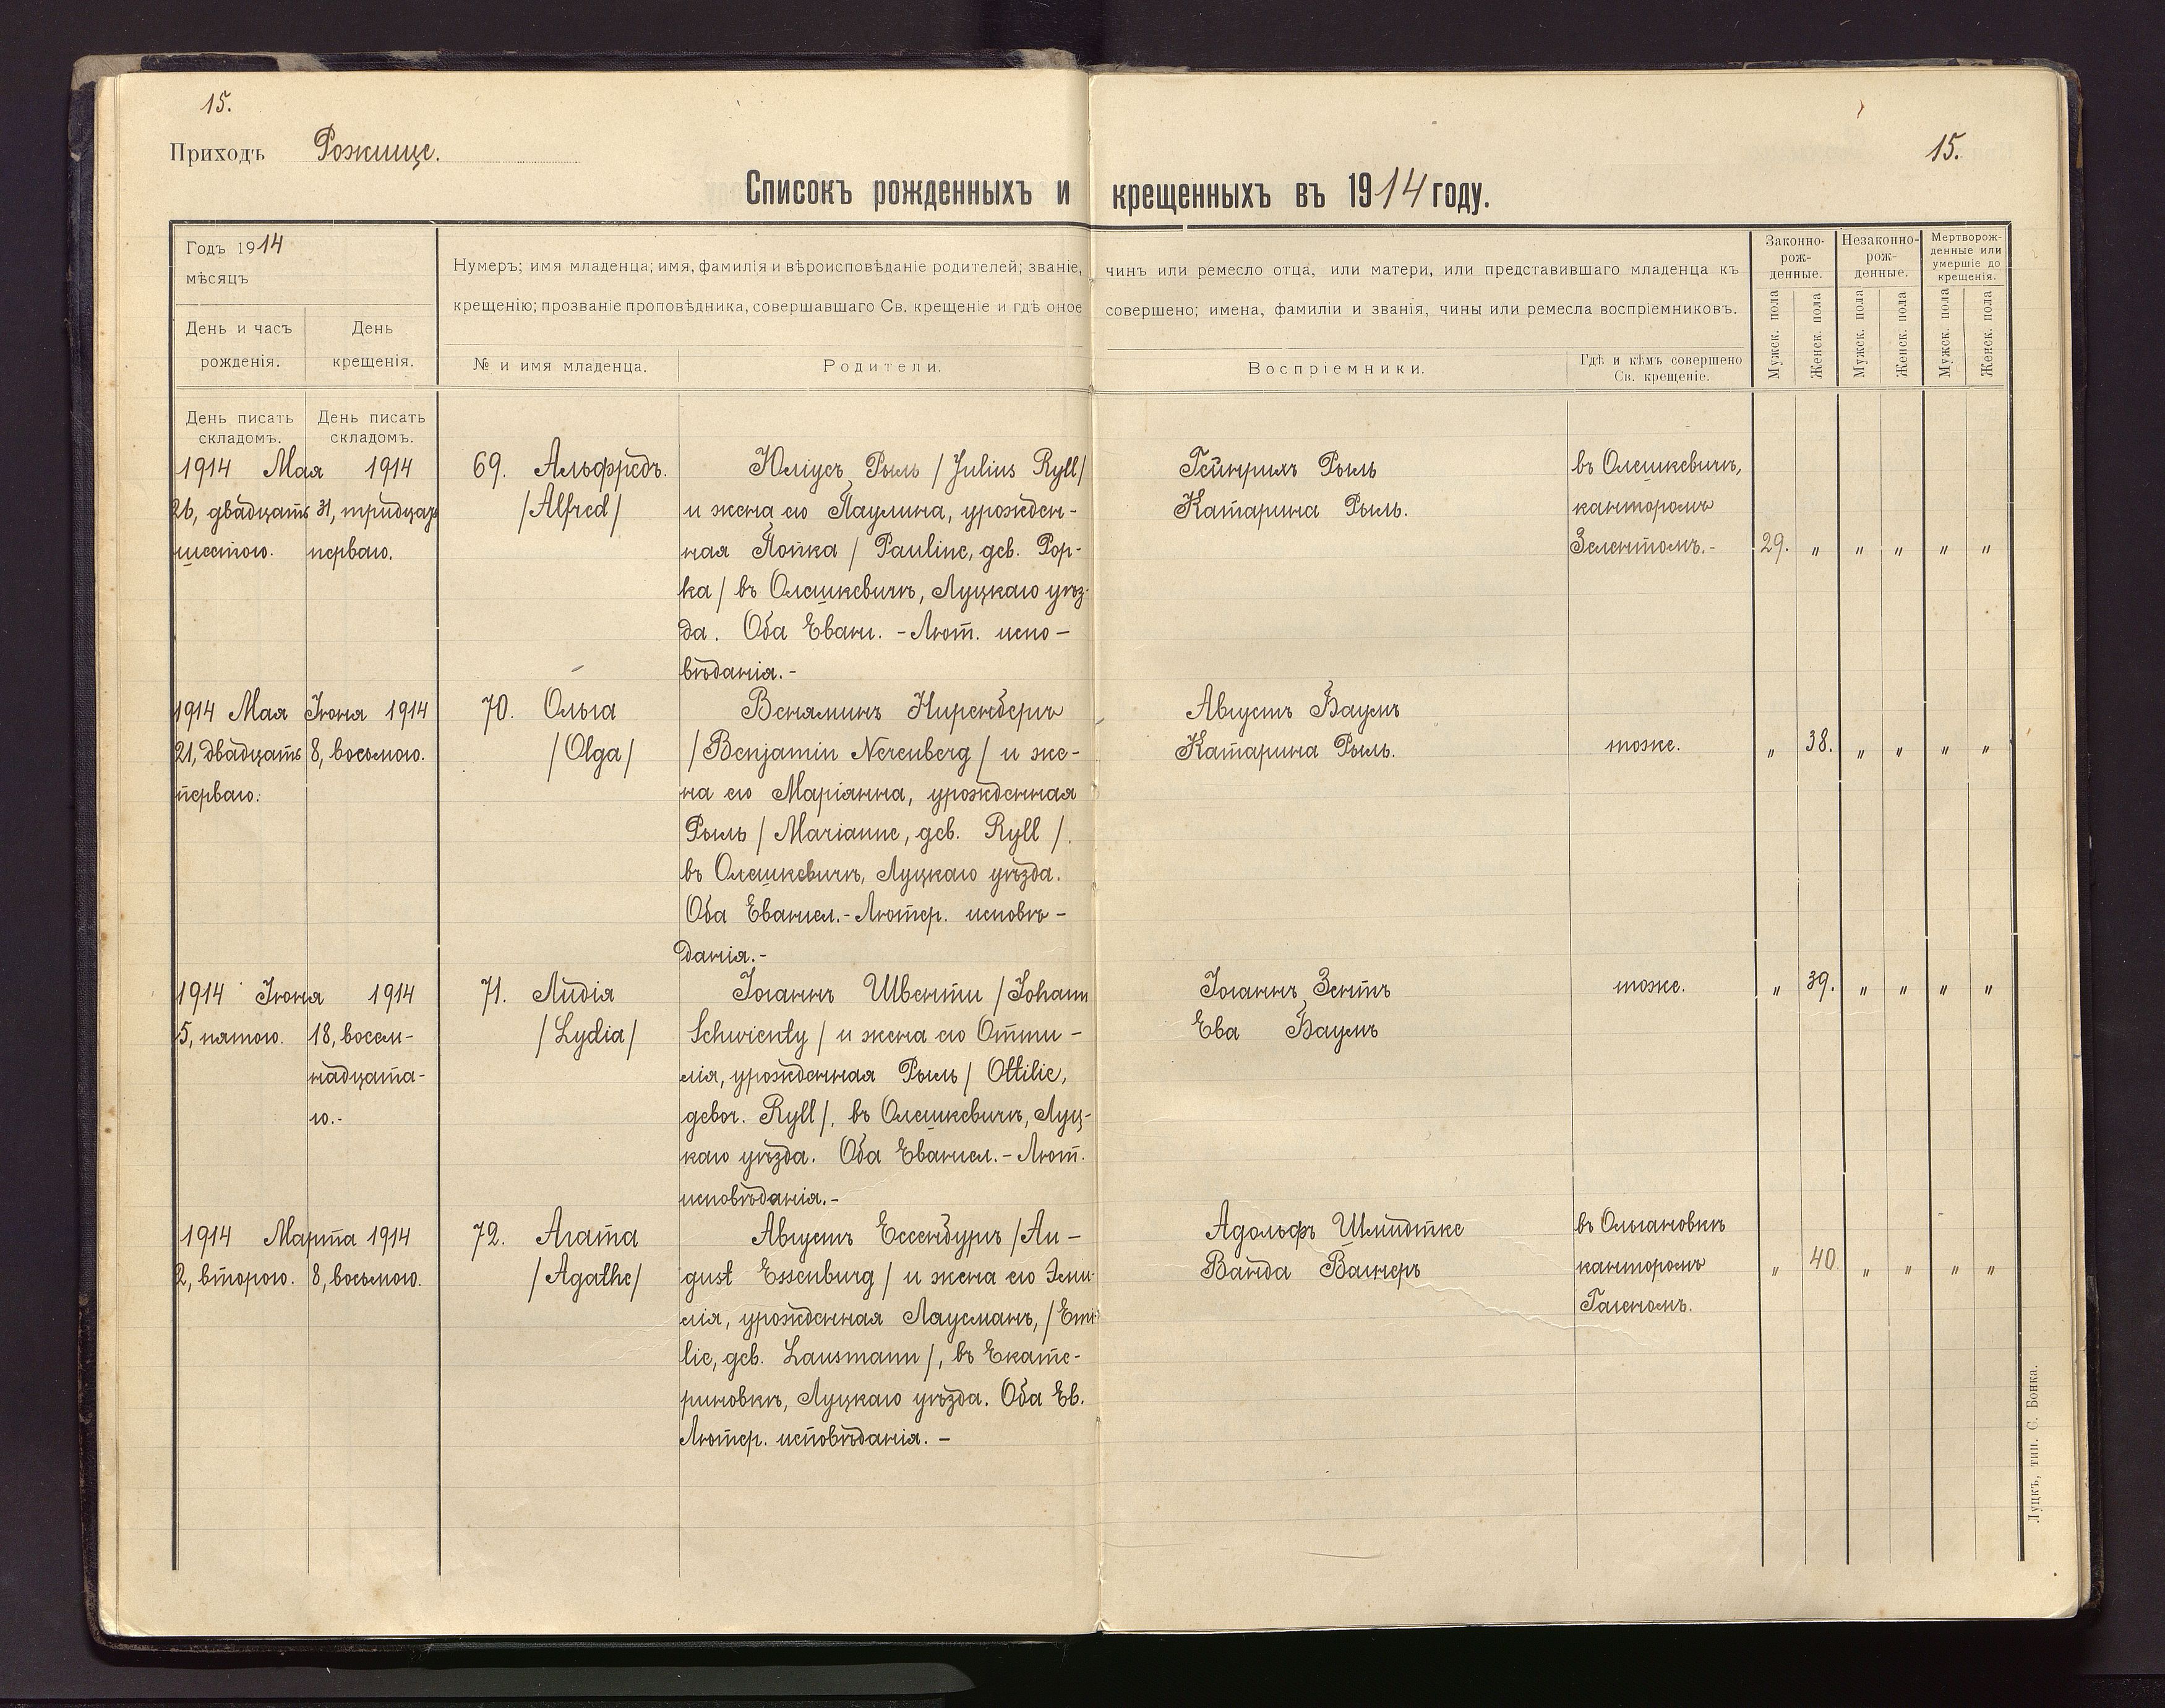 15.
15.
Приходъ Рожище.
Списокъ рожденныхъ и крещенныхъ въ 1914 году.
Годъ 1914
мѣсяцъ
День и часъ
рожденія.
День
крещенія.
Нумеръ; имя младенца; имя, фамилія и вѣроисповѣданіе родителей; званіе, чинъ или ремесло отца, или матери, или представившаго младенца къ
крещенію; прозваніе проповѣдника, совершавшаго Св. крещеніе и гдѣ оное совершено; имена, фамиліи и званія, чины или ремесла воспріемниковъ.
№ и имя младенца.
Родители.
Воспріемники.
Гдѣ и кѣмъ совершено
Св. крещеніе.
Законно-
рож-
денные.
Незаконно-
рож-
денные.
Мертворож-
денные или
умершіе до
крещенія.
Мужск. пола
Женск. пола
Мужск. пола
Женск. пола
Мужск. пола
Женск. пола
День писать
складомъ.
День писать
складомъ.
1914 Мая 1914
26, двадцать 31, тридцать
шестого. перваго.
69. Альфредъ.
/Alfred/
Юліусъ Рыль /Julius Ryll/
и жена его Паулина, урожден-
ная Попка / Pauline, geb. Pop-
ka / въ Олешкевичѣ, Луцкаго уѣз-
да. Оба Еванг. - Лют. испо-
вѣданія.-
Гейнрихъ Рыль
Катарина Рыль.
въ Олешкевичѣ,
канторомъ
Зелентомъ.-
29. " " " " "
1914 Мая Іюня 1914
21, двадцать 8, восьмого.
перваго.
70. Ольга
/Olga/
Веняминъ Ниренбергъ
/Benjamin Nerenberg / и же-
на его Маріанна, урожденная
Рыль / Marianne, geb. Ryll /.
въ Олешкевичѣ, Луцкаго уѣзда.
Оба Евангел.- Лютер. исповѣ-
данія.-
Августъ Баумъ
Катарина Рыль.
тоже.
" 38. " " " "
1914 Іюня 1914
5, пятого. 18, восем-
надцата-
го.-
71. Лидія
/Lydia/
Іоганнъ Швенти /Johann
Schwienty / и жена его Отти-
лія, урожденная Рыль / Ottilie,
gebor. Ryll /, въ Олешкевичѣ, Луц-
каго уѣзда. Оба Евангел.- Лют.
исповѣданія.-
Іоганнъ Зентъ
Ева Баумъ
тоже.
" 39. " " " "
1914 Марта 1914
2, второго. 8, восьмого.
72. Агата
/Agathe/
Августъ Ессенбургъ /Au-
gust Essenburg / и жена его Эми-
лія, урожденная Лаусманъ, /Emi-
lie, geb. Lausmann /, въ Екате-
риновкѣ, Луцкаго уѣзда. Оба Ев.
Лютер. исповѣданія. -
Адольфъ Шмидтке
Ванда Вагнеръ
въ Ольгановкѣ
канторомъ
Гагеномъ.
" 40 " " " "
Луцкъ, тип. С. Бонка.